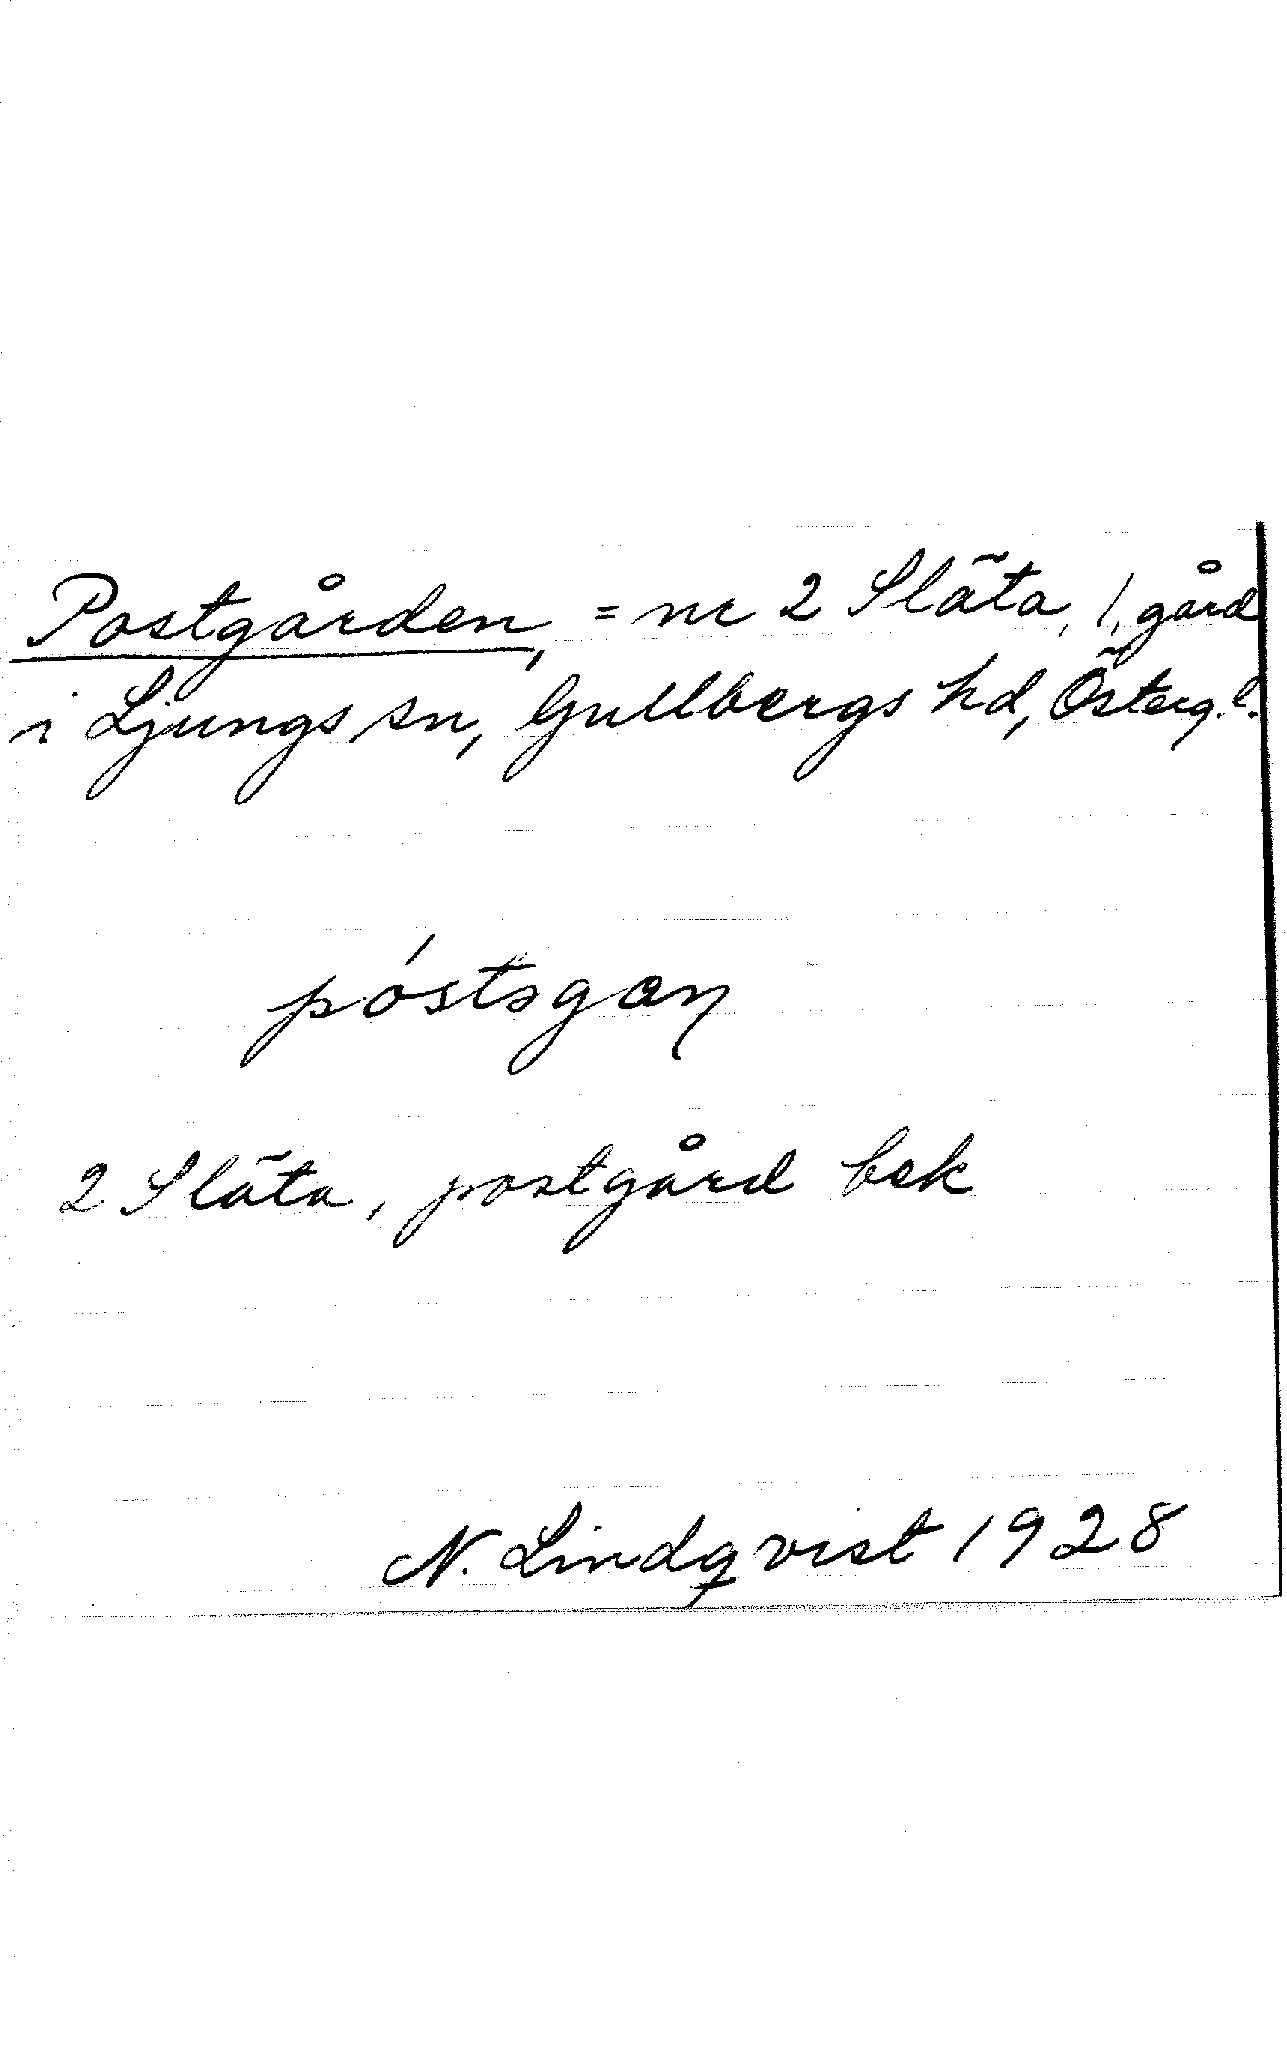 Postgården, = nr 2 Släta, 1, gård
i Ljungs sn, Gullbergs hd, Österg. l.
póstsgan
2 Släta, postgård bek
N. Lindqvist 1928